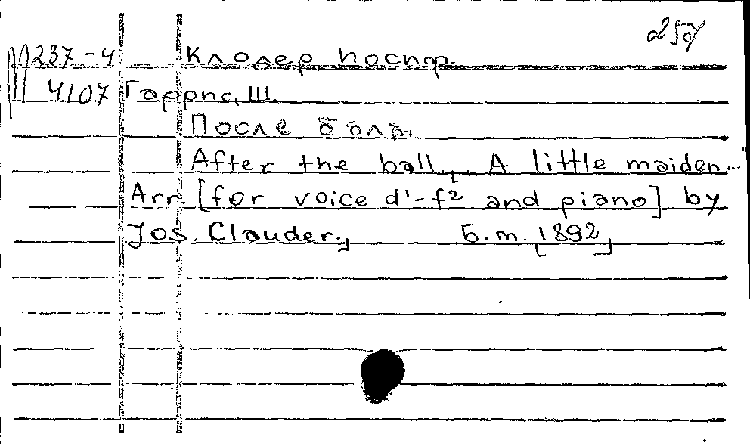 257
М237-4 Клодер Иосиф.
4107 Гаррис, Ш.
После бала.
After the ball, A little maiden..
Arr. [for voice d'-f² and piano] by
Jos. Clauder., Б.m. [1892]